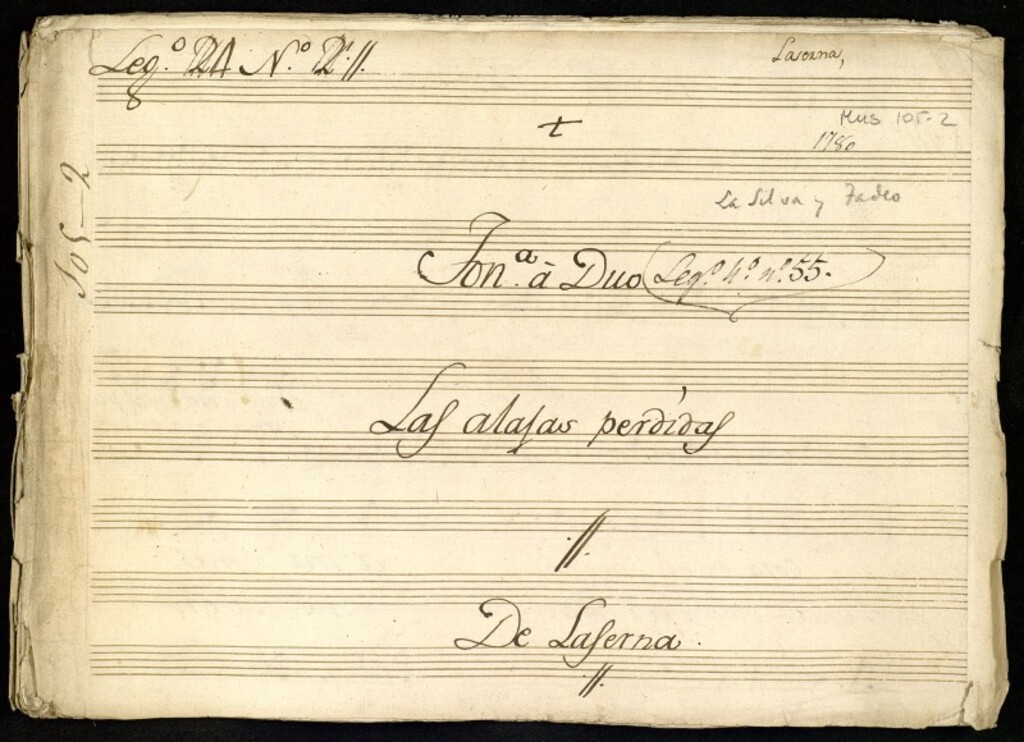 Leg.º N.º //.
Laserna,
8
+
Mus 105-2
1780
105-2
La Silva y Tadeo
Ton.ª à Duo (Leg.º 4.º n.º 55.
Las alajas perdidas
.//.
De Laserna.
//.